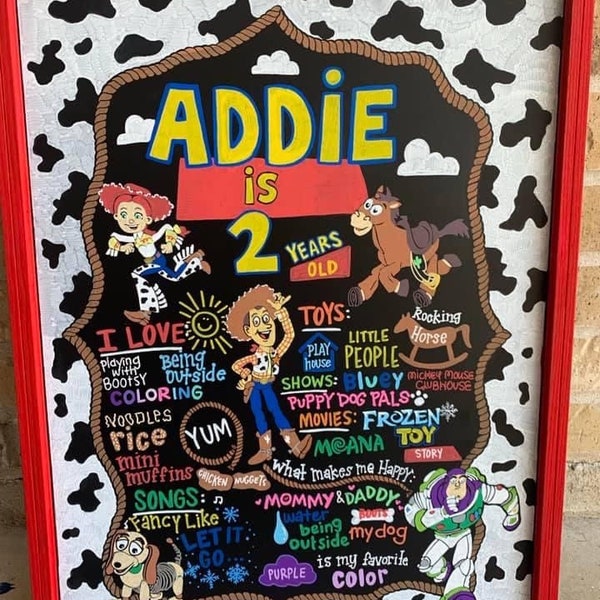 ADDIE
is
2
YEARS
OLD
I LOVE:
Playing
with
Bootsy
Being
outside
COLORING
NOODLES
rice
mini
muffins
YUM
CHICKEN NUGGETS
SONGS:
Fancy Like
LET IT
GO...
TOYS:
PLAY
house
LITTLE
PEOPLE
Rocking
Horse
SHOWS: BLUEY
MICKEY MOUSE
CLUBHOUSE
PUPPY DOG PALS
MOVIES: FROZEN
MOANA TOY
STORY
What makes me Happy:
MOMMY & DADDY
water
being
outside
BOOTS
my dog
PURPLE
is my favorite
color